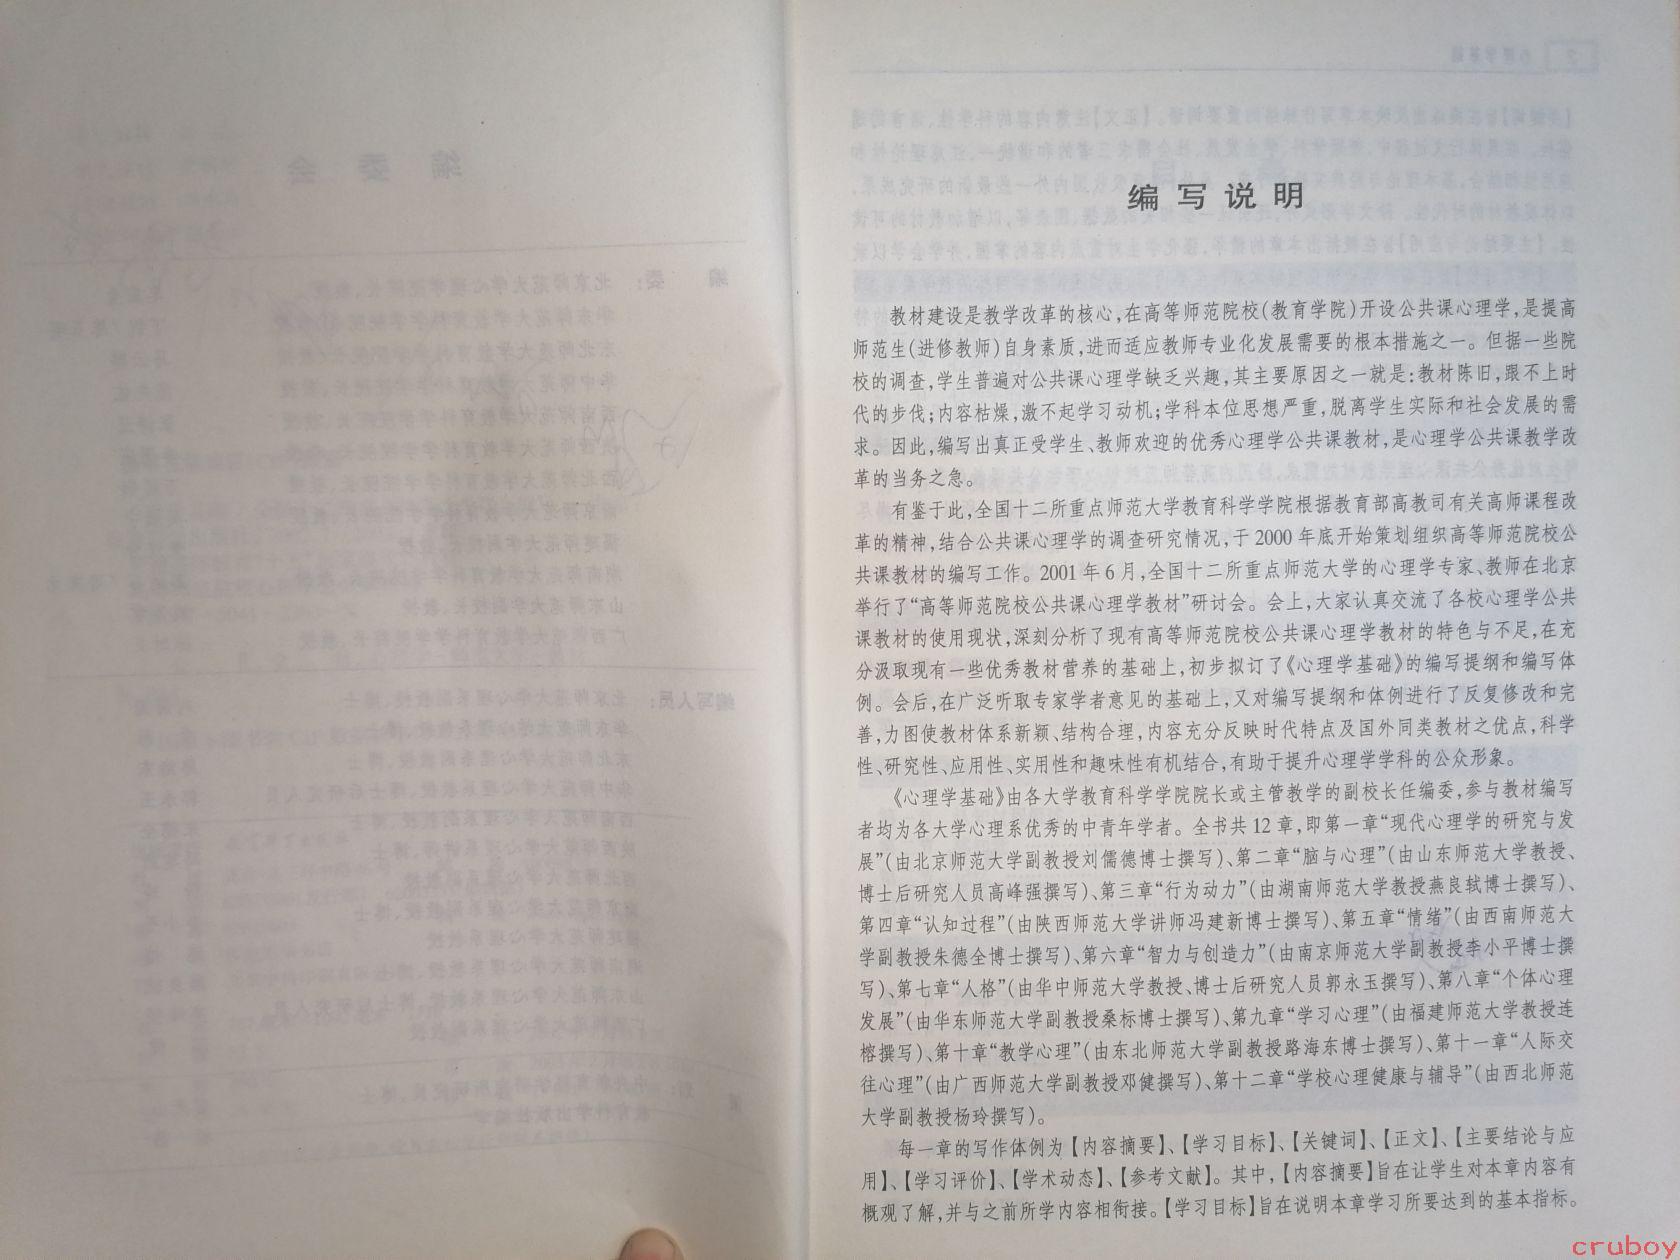 编写说明
教材建设是教学改革的核心，在高等师范院校(教育学院)开设公共课心理学，是提高
师范生(进修教师)自身素质，进而适应教师专业化发展需要的根本措施之一。但据一些院
校的调查，学生普遍对公共课心理学缺乏兴趣，其主要原因之一就是：教材陈旧，跟不上时
代的步伐；内容枯燥，激不起学习动机；学科本位思想严重，脱离学生实际和社会发展的需
求。因此，编写出真正受学生、教师欢迎的优秀心理学公共课教材，是心理学公共课教学改
革的当务之急。
有鉴于此，全国十二所重点师范大学教育科学学院根据教育部高教司有关高师课程改
革的精神，结合公共课心理学的调查研究情况，于2000年底开始策划组织高等师范院校公
共课教材的编写工作。2001年6月，全国十二所重点师范大学的心理学专家、教师在北京
举行了“高等师范院校公共课心理学教材”研讨会。会上，大家认真交流了各校心理学公共
课教材的使用现状，深刻分析了现有高等师范院校公共课心理学教材的特色与不足，在充
分汲取现有一些优秀教材营养的基础上，初步拟订了《心理学基础》的编写提纲和编写体
例。会后，在广泛听取专家学者意见的基础上，又对编写提纲和体例进行了反复修改和完
善，力图使教材体系新颖、结构合理，内容充分反映时代特点及国外同类教材之优点，科学
性、研究性、应用性、实用性和趣味性有机结合，有助于提升心理学学科的公众形象。
《心理学基础》由各大学教育科学学院院长或主管教学的副校长任编委，参与教材编写
者均为各大学心理系优秀的中青年学者。全书共12章，即第一章“现代心理学的研究与发
展”(由北京师范大学副教授刘儒德博士撰写)、第二章“脑与心理”(由山东师范大学教授、
博士后研究人员高峰强撰写)、第三章“行为动力”(由湖南师范大学教授燕良轼博士撰写)、
第四章“认知过程”(由陕西师范大学讲师冯建新博士撰写)、第五章“情绪”(由西南师范大
学副教授朱德全博士撰写)、第六章“智力与创造力”(由南京师范大学副教授李小平博士撰
写)、第七章“人格”(由华中师范大学教授、博士后研究人员郭永玉撰写)、第八章“个体心理
发展”(由华东师范大学副教授桑标博士撰写)、第九章“学习心理”(由福建师范大学教授连
榕撰写)、第十章“教学心理”(由东北师范大学副教授路海东博士撰写)、第十一章“人际交
往心理”(由广西师范大学副教授邓健撰写)、第十二章“学校心理健康与辅导”(由西北师范
大学副教授杨玲撰写)。
每一章的写作体例为【内容摘要】、【学习目标】、【关键词】、【正文】、【主要结论与应
用】、【学习评价】、【学术动态】、【参考文献】。其中，【内容摘要】旨在让学生对本章内容有
概观了解，并与之前所学内容相衔接。【学习目标】旨在说明本章学习所要达到的基本指标。
cruboy